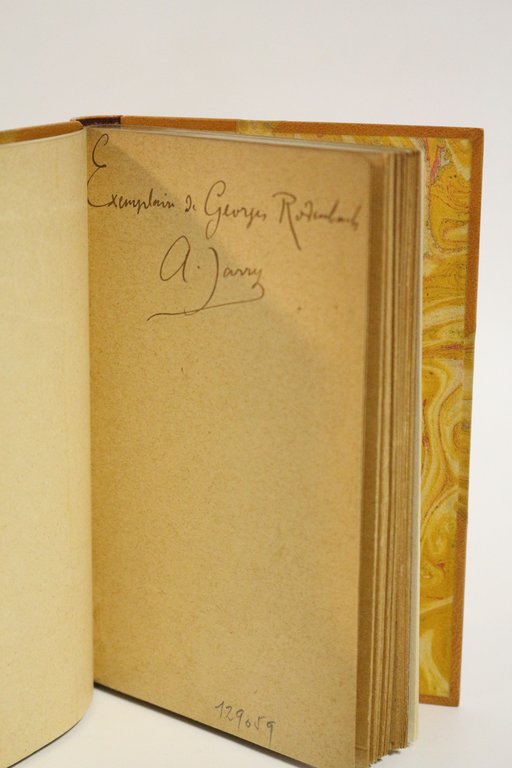 Exemplaire de Georges Rodenbach
A. Jarry
129059